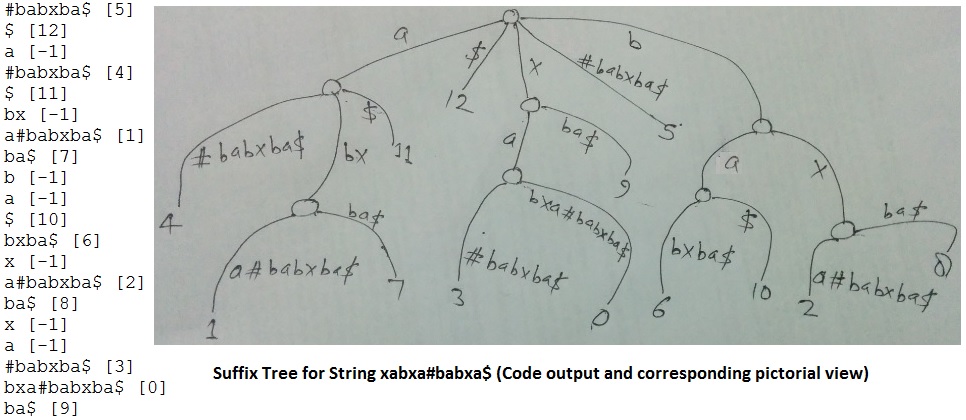 #babxba$ [5]
$ [12]
a [-1]
#babxba$ [4]
$ [11]
bx [-1]
a#babxba$ [1]
ba$ [7]
b [-1]
a [-1]
$ [10]
bxba$ [6]
x [-1]
a#babxba$ [2]
ba$ [8]
x [-1]
a [-1]
#babxba$ [3]
bxa#babxba$ [0]
ba$ [9]
a
$
x
#babxba$
b
12
5
#babxba$
bx
$
11
a
ba$
9
a
x
4
ba$
a#babxba$
1
7
#babxba$
bxa#babxba$
3
0
bxba$
$
6
10
ba$
a#babxba$
2
8
Suffix Tree for String xabxa#babxa$ (Code output and corresponding pictorial view)